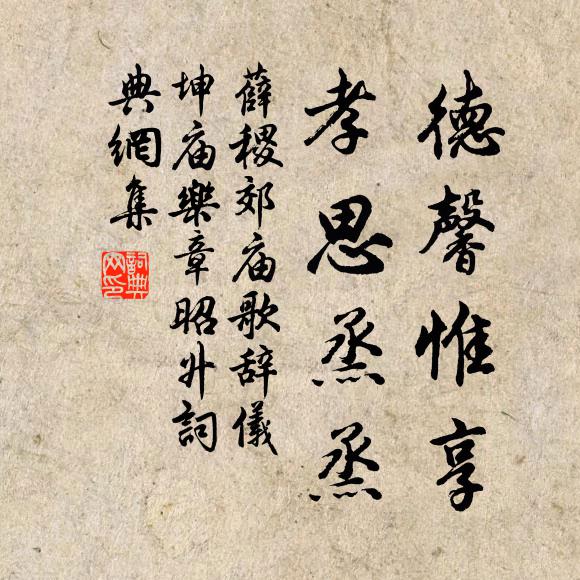 德馨惟享
孝思烝烝
薛稷郊庙歌辞儀
坤庙樂章昭升詞
典網集
詞典
网印